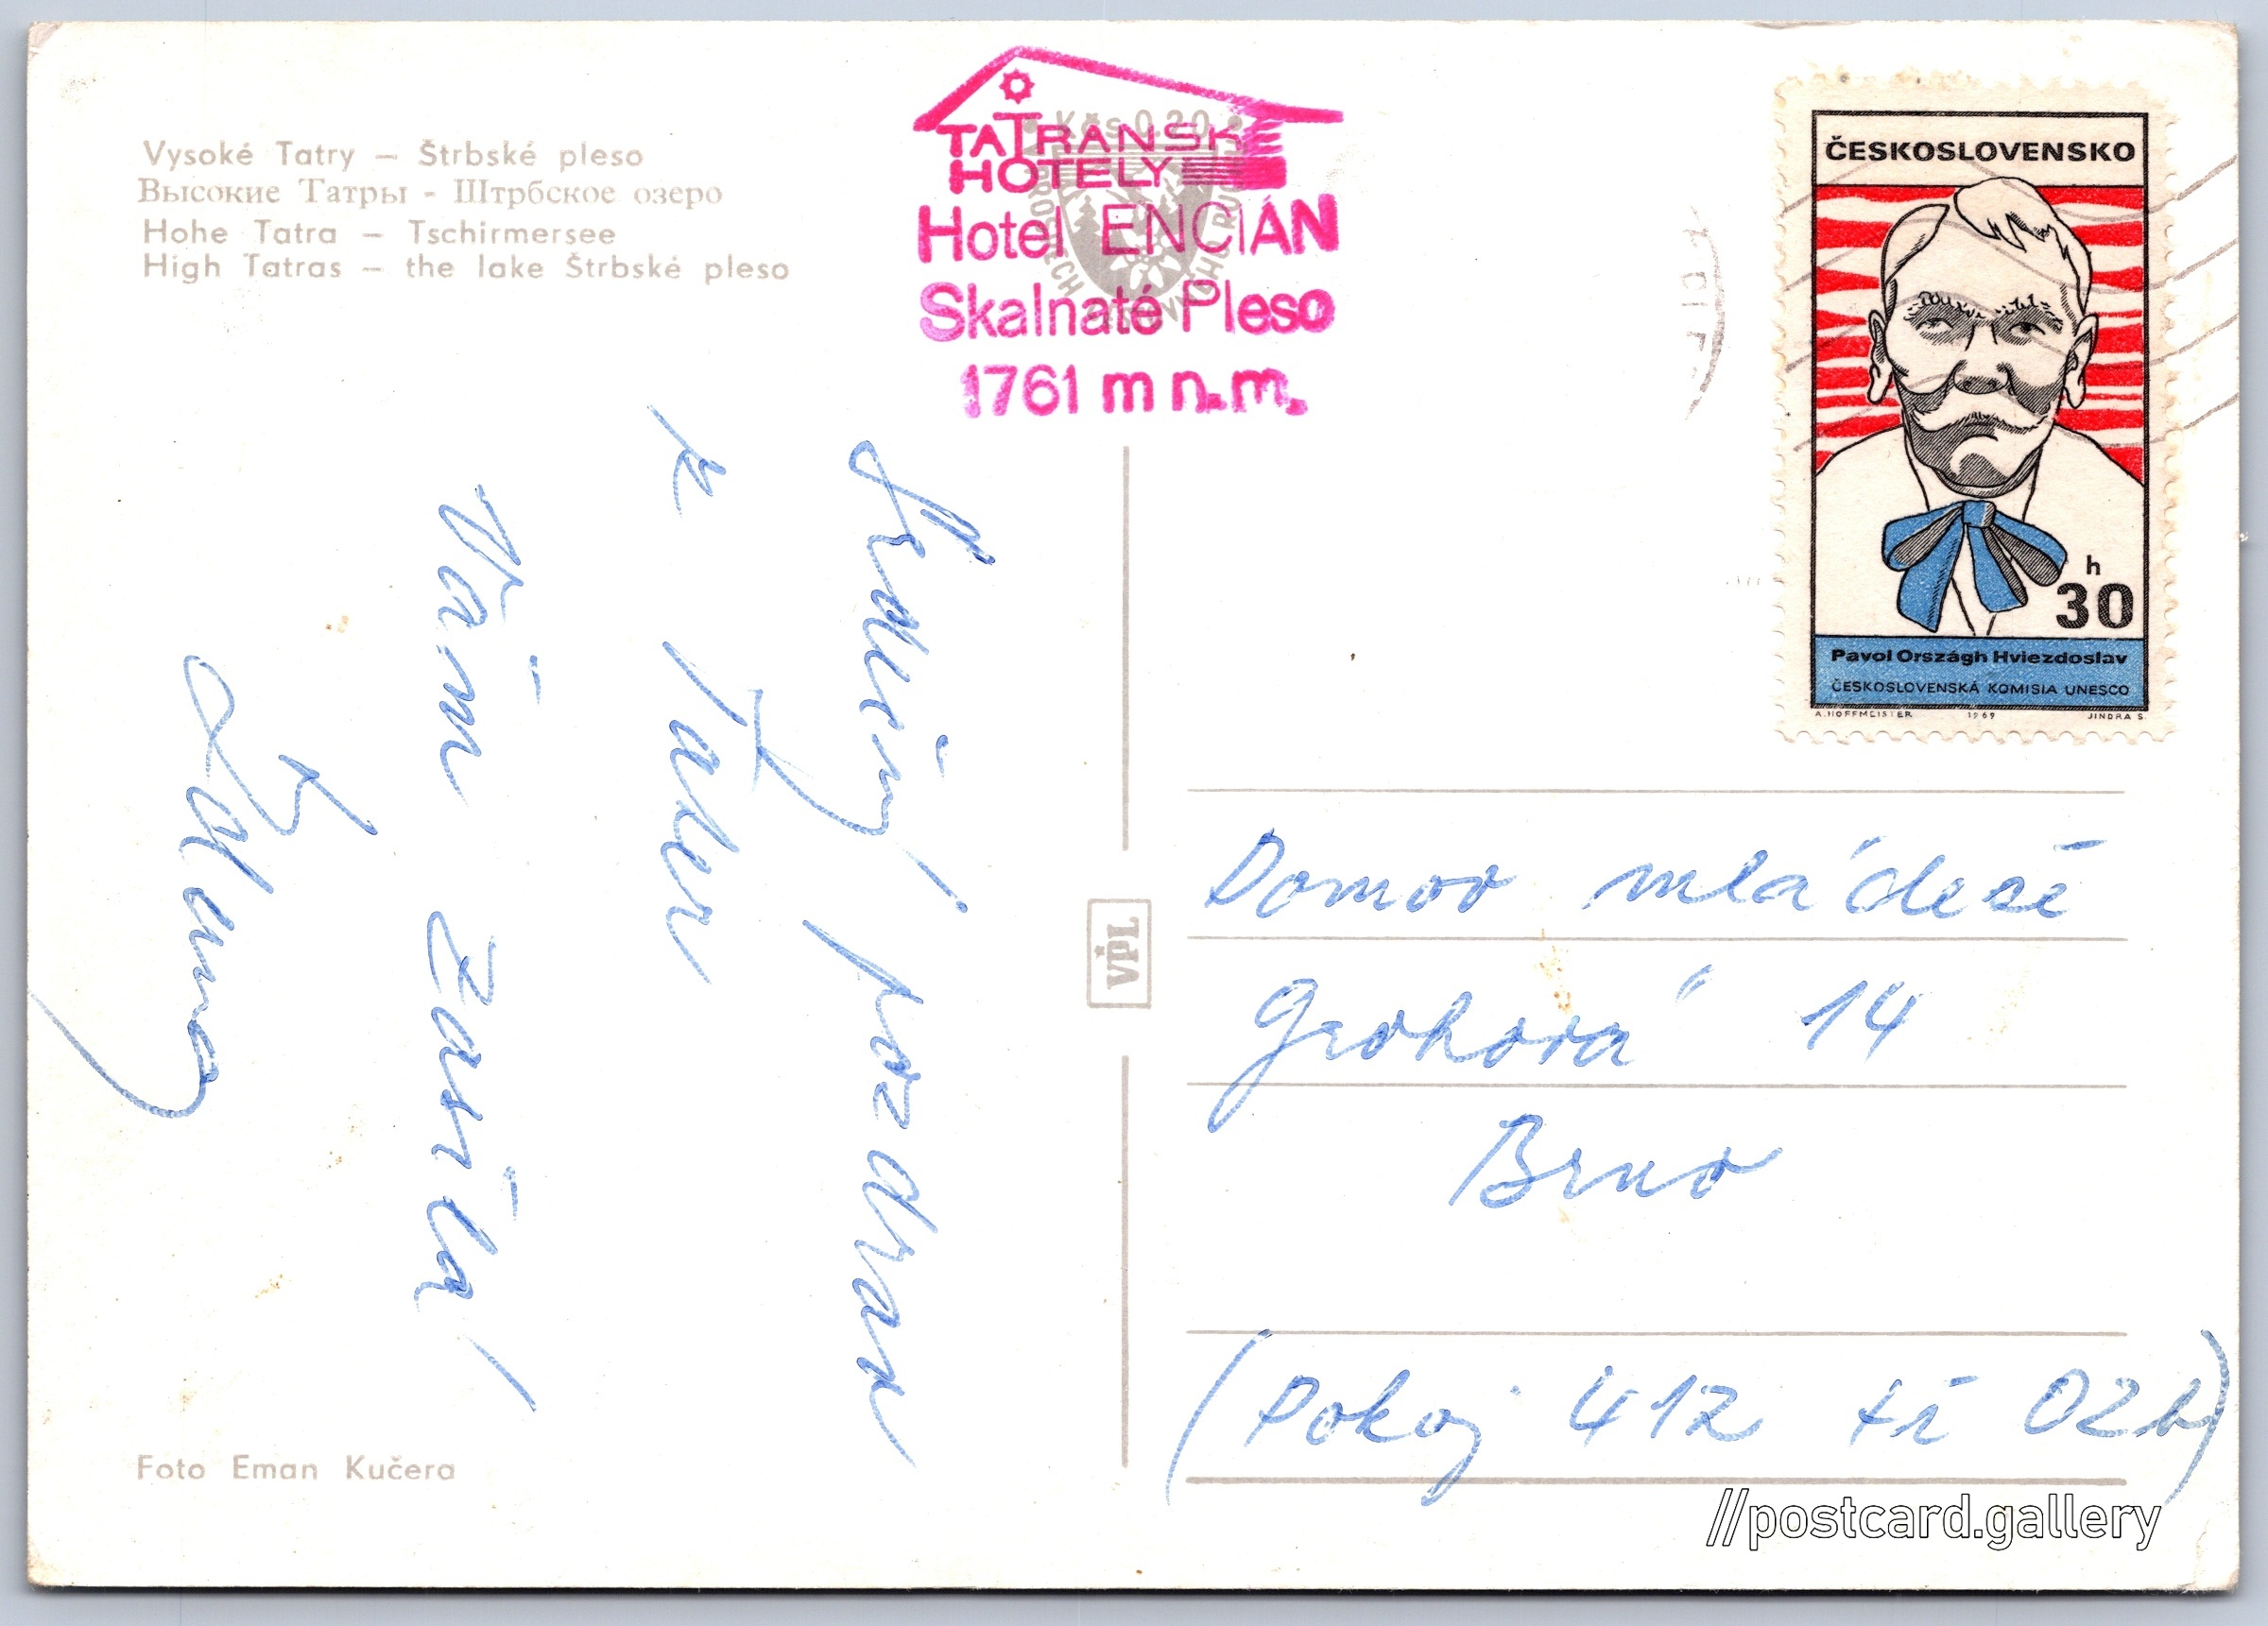 Vysoké Tatry – Štrbské pleso
Высокие Татры - Штрбское озеро
Hohe Tatra – Tschirmersee
High Tatras – the lake Štrbské pleso
Kčs 0.20
TATRANSKÉ
HOTELY
Hotel ENCIÁN
Skalnaté Pleso
1761 m n.m.
ČESKOSLOVENSKO
h
30
Pavol Országh Hviezdoslav
ČESKOSLOVENSKÁ KOMISIA UNESCO
A. HOFFMEISTER 1969 JINDRA S.
Srdečný pozdrav
z Tater
Vám zasílá
VPL
Domov mládeže
Grohova 14
Brno
(Pokoj 412 tř O2b)
Foto Eman Kučera
//postcard.gallery